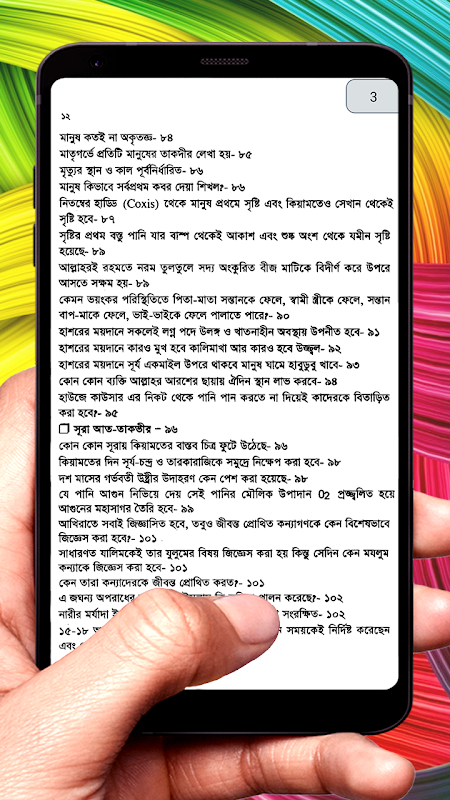 3
১২
মানুষ কতই না অকৃতজ্ঞ- ৮৪
মাতৃগর্ভে প্রতিটি মানুষের তাকদীর লেখা হয়- ৮৫
মৃত্যুর স্থান ও কাল পূর্বনির্ধারিত- ৮৬
মানুষ কিভাবে সর্বপ্রথম কবর দেয়া শিখল?- ৮৬
নিতম্বের হাড্ডি (Coxis) থেকে মানুষ প্রথমে সৃষ্টি এবং কিয়ামতেও সেখান থেকেই
সৃষ্টি হবে- ৮৭
সৃষ্টির প্রথম বস্তু পানি যার বাষ্প থেকেই আকাশ এবং শুষ্ক অংশ থেকে যমীন সৃষ্টি
হয়েছে- ৮৯
আল্লাহরই রহমতে নরম তুলতুলে সদ্য অংকুরিত বীজ মাটিকে বিদীর্ণ করে উপরে
আসতে সক্ষম হয়- ৮৯
কেমন ভয়ংকর পরিস্থিতিতে পিতা-মাতা সন্তানকে ফেলে, স্বামী স্ত্রীকে ফেলে, সন্তান
বাপ-মাকে ফেলে, ভাই-ভাইকে ফেলে পালাতে পারে?- ৯০
হাশরের ময়দানে সকলেই লগ্ন পদে উলঙ্গ ও খাতনাহীন অবস্থায় উপনীত হবে- ৯১
হাশরের ময়দানে কারও মুখ হবে কালিমাখা আর কারও হবে উজ্জ্বল- ৯২
হাশরের ময়দানে সূর্য একমাইল উপরে থাকবে মানুষ ঘামে হাবুডুবু খাবে- ৯৩
কোন কোন ব্যক্তি আল্লাহর আরশের ছায়ায় ঐদিন স্থান লাভ করবে- ৯৪
হাউজে কাউসার এর নিকট থেকে পানি পান করতে না দিয়েই কাদেরকে বিতাড়িত
করা হবে?- ৯৫
❐ সূরা আত-তাকভীর – ৯৬
কোন কোন সূরায় কিয়ামতের বাস্তব চিত্র ফুটে উঠেছে- ৯৬
কিয়ামতের দিন সূর্য-চন্দ্র ও তারকারাজিকে সমুদ্রে নিক্ষেপ করা হবে- ৯৮
দশ মাসের গর্ভবতী উষ্ট্রীর উদাহরণ কেন পেশ করা হয়েছে- ৯৮
যে পানি আগুন নিভিয়ে দেয় সেই পানির মৌলিক উপাদান 02 প্রজ্জ্বলিত হয়ে
আগুনের মহাসাগর তৈরি হবে- ৯৯
আখিরাতে সবাই জিজ্ঞাসিত হবে, তবুও জীবন্ত প্রোথিত কন্যাগণকে কেন বিশেষভাবে
জিজ্ঞেস করা হবে?- ১০১
সাধারণত যালিমকেই তার যুলুমের বিষয় জিজ্ঞেস করা হয় কিন্তু সেদিন কেন মযলুম
কন্যাকে জিজ্ঞেস করা হবে- ১০১
কেন তারা কন্যাদেরকে জীবন্ত প্রোথিত করত?- ১০১
এ জঘন্য অপরাধের পালন করেছে?- ১০২
নারীর মর্যাদা সংরক্ষিত- ১০২
১৫-১৮ সময়কেই নির্দিষ্ট করেছেন
এবং